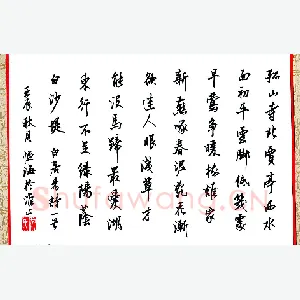 孤山寺北賈亭西水
面初平雲脚低幾處
早鶯争暖樹誰家
新燕啄春泥亂花漸
欲迷人眼淺草方
能没馬蹄最愛湖
東行不足綠楊蔭
白沙堤 白居易詩一首
壬辰秋月 恒海於淮上
Shufawang.CN